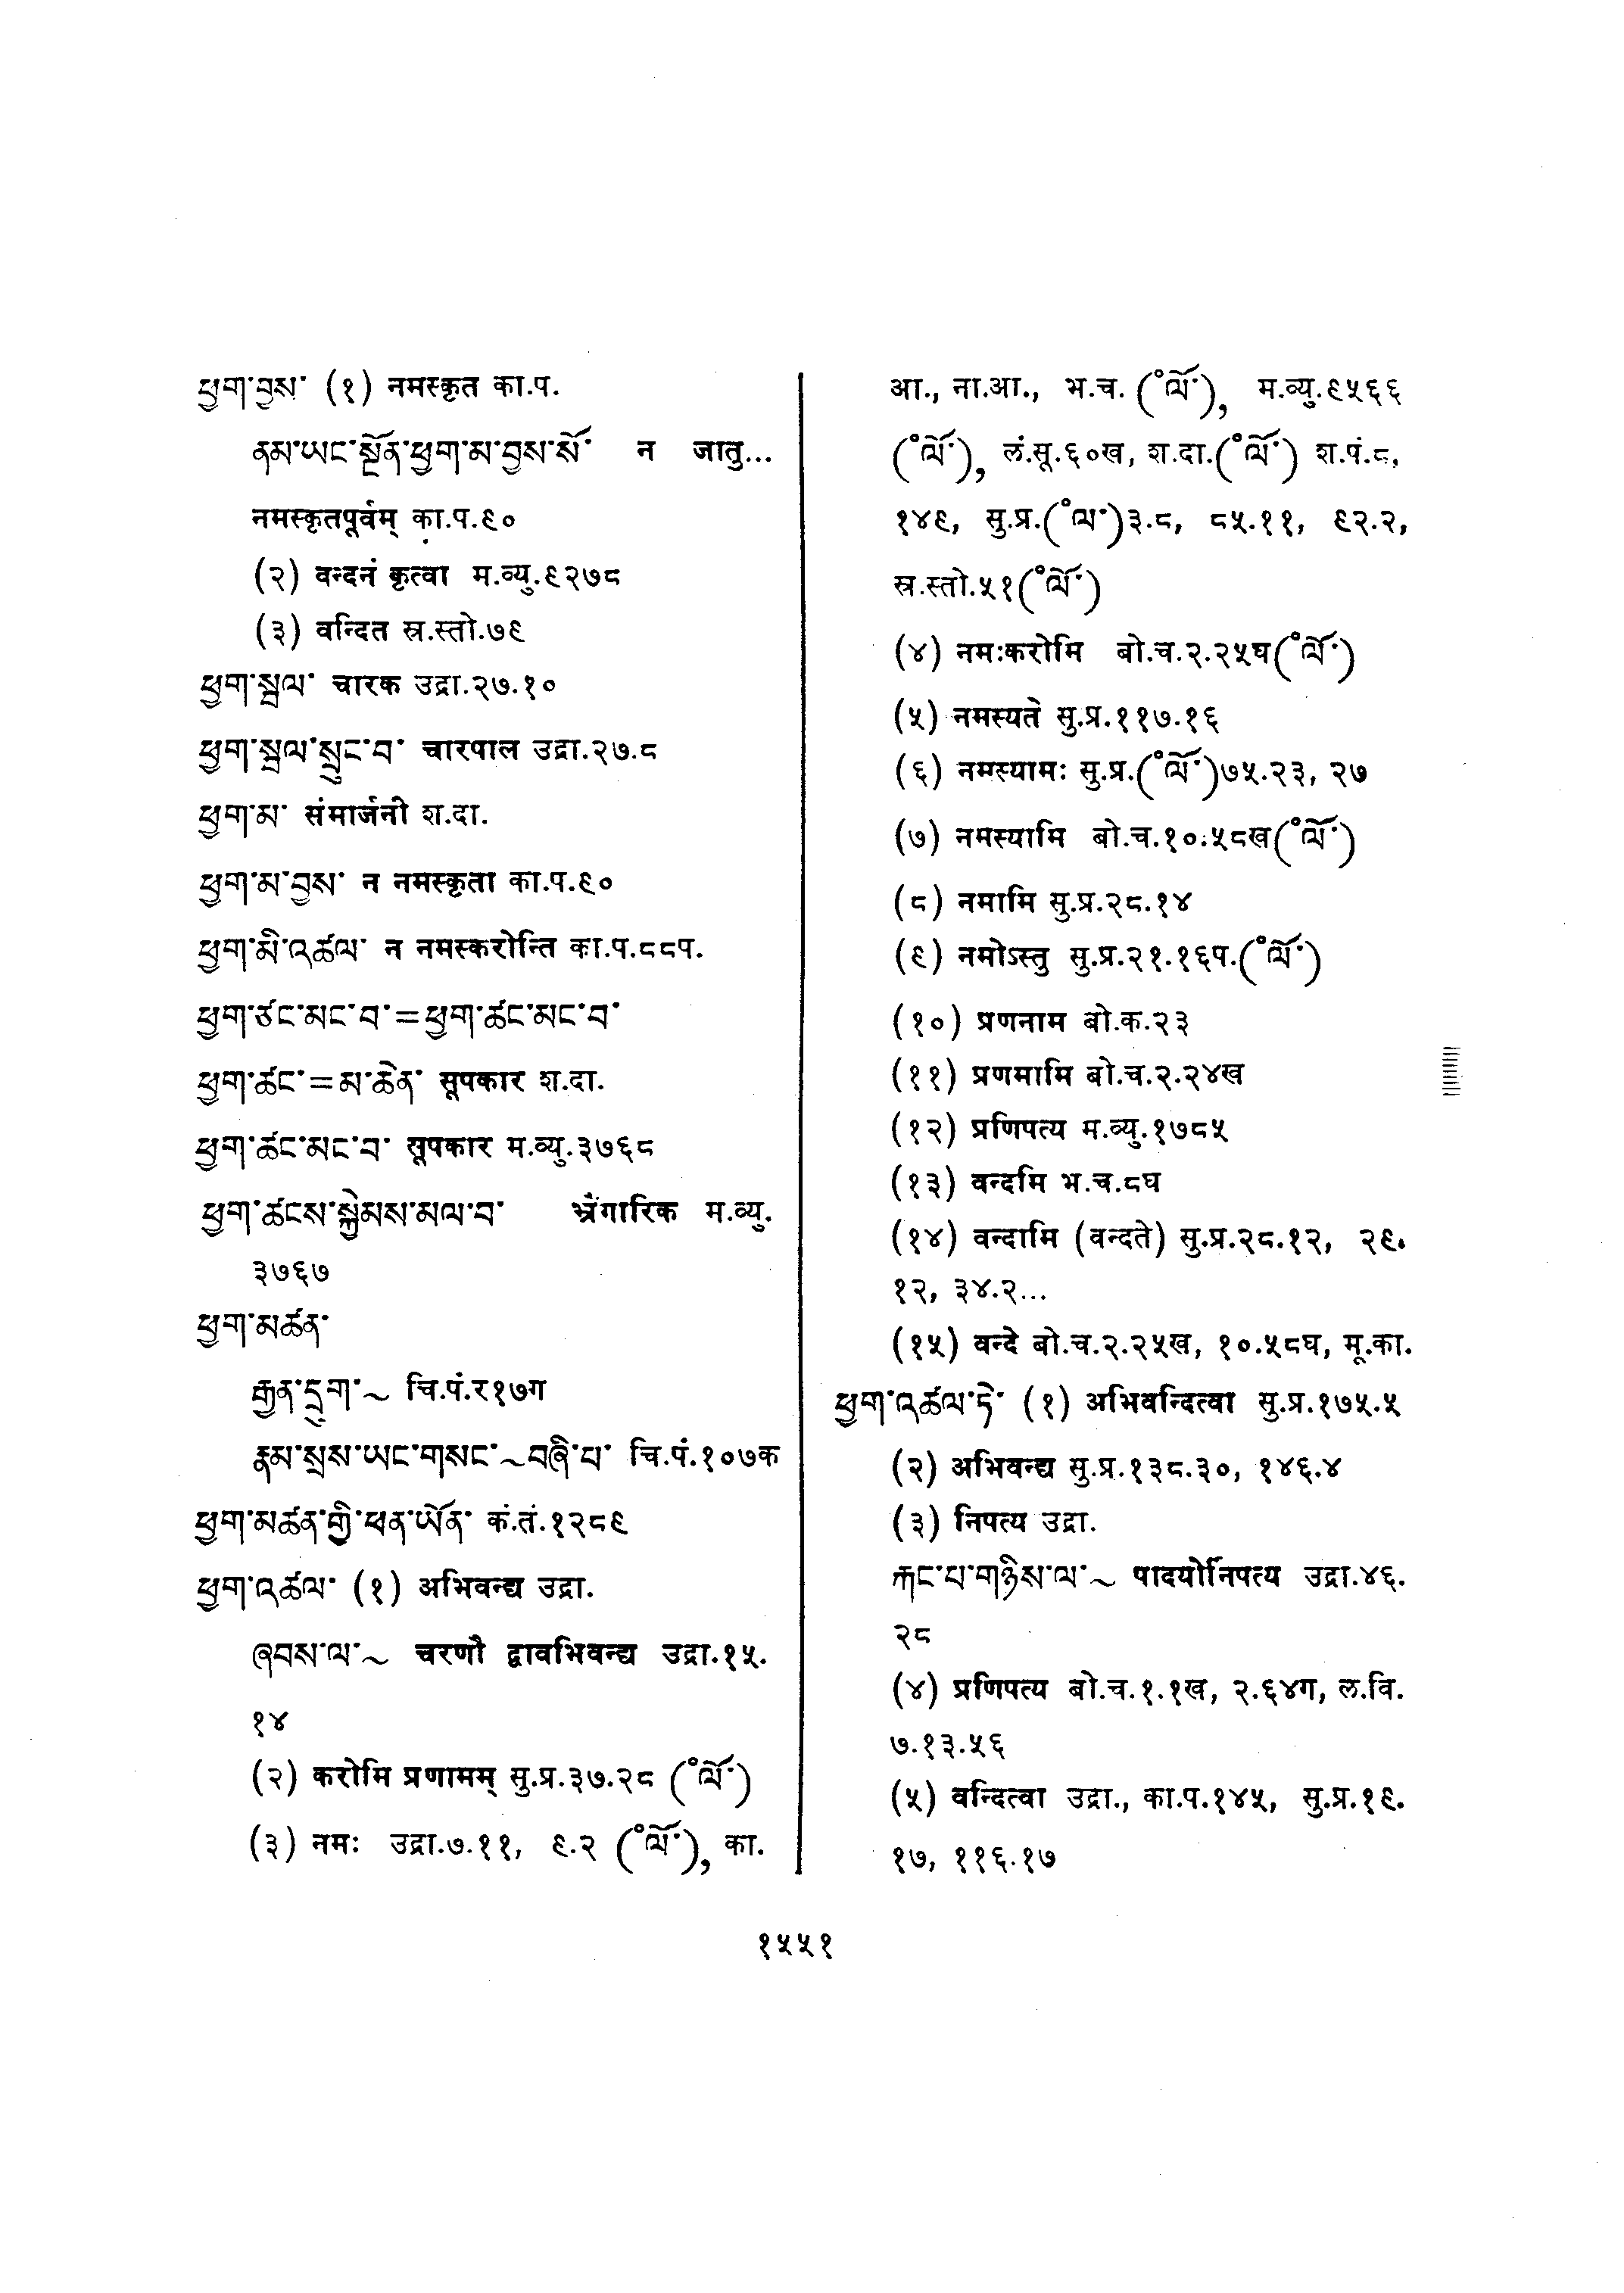 ཕྱག་བྱས་ (१) नमस्कृत का.प.
ནམ་ཡང་སྔོན་ཕྱག་མ་བྱས་སོ་ न जातु...
नमस्कृतपूर्वम् का.प.९०
(२) वन्दनं कृत्वा म.व्यु.९२७८
(३) वन्दित स्र.स्तो.७९
ཕྱག་སྦྲལ་ चारक उद्रा.२७.१०
ཕྱག་སྦྲལ་སྲུང་བ་ चारपाल उद्रा.२७.८
ཕྱག་མ་ संमार्जनी श.दा.
ཕྱག་མ་བྱས་ न नमस्कृता का.प.९०
ཕྱག་མི་འཚལ་ न नमस्करोन्ति का.प.८८प.
ཕྱག་ཙང་མང་བ་=ཕྱག་ཚང་མང་བ་
ཕྱག་ཚང་=མ་ཆེན་ सूपकार श.दा.
ཕྱག་ཚང་མང་བ་ सूपकार म.व्यु.३७६८
ཕྱག་ཚངས་སྐྱེམས་མལ་བ་ भ्रंगारिक म.व्यु.
३७६७
ཕྱག་མཚན་
རྒྱན་དྲུག་~ चि.पं.र१७ग
རྣམ་སྲས་ཡང་གསང་~བཞི་པ་ चि.पं.१०७क
ཕྱག་མཚན་གྱི་ཕན་ཡོན་ कं.तं.१२८९
ཕྱག་འཚལ་ (१) अभिवन्द्य उद्रा.
ཞབས་ལ་~ चरणौ द्वावभिवन्द्य उद्रा.१५.
१४
(२) करोमि प्रणामम् सु.प्र.३७.२८ (°ལོ་)
(३) नमः उद्रा.७.११, ९.२ (°ལོ་), का.
आ., ना.आ., भ.च. (°ལོ་), म.व्यु.९५६६
(°ལོ་), लं.सू.६०ख, श.दा.(°ལོ་) श.पं.८,
१४९, सु.प्र.(°ལ་)३.८, ८५.११, ९२.२,
स्र.स्तो.५१(°ལོ་)
(४) नमःकरोमि बो.च.२.२५घ(°ལོ་)
(५) नमस्यते सु.प्र.११७.१६
(६) नमस्यामः सु.प्र.(°ལོ་)७५.२३, २७
(७) नमस्यामि बो.च.१०.५८ख(°ལོ་)
(८) नमामि सु.प्र.२८.१४
(९) नमोऽस्तु सु.प्र.२१.१६प.(°ལོ་)
(१०) प्रणनाम बो.क.२३
(११) प्रणमामि बो.च.२.२४ख
(१२) प्रणिपत्य म.व्यु.१७८५
(१३) वन्दमि भ.च.८घ
(१४) वन्दामि (वन्दते) सु.प्र.२८.१२, २९.
१२, ३४.२...
(१५) वन्दे बो.च.२.२५ख, १०.५८घ, मू.का.
ཕྱག་འཚལ་ཏེ་ (१) अभिवन्दित्वा सु.प्र.१७५.५
(२) अभिवन्द्य सु.प्र.१३८.३०, १४६.४
(३) निपत्य उद्रा.
རྐང་པ་གཉིས་ལ་~ पादयोर्निपत्य उद्रा.४६.
२८
(४) प्रणिपत्य बो.च.१.१ख, २.६४ग, ल.वि.
७.१३.५६
(५) वन्दित्वा उद्रा., का.प.१४५, सु.प्र.१९.
१७, ११६.१७
१५५१